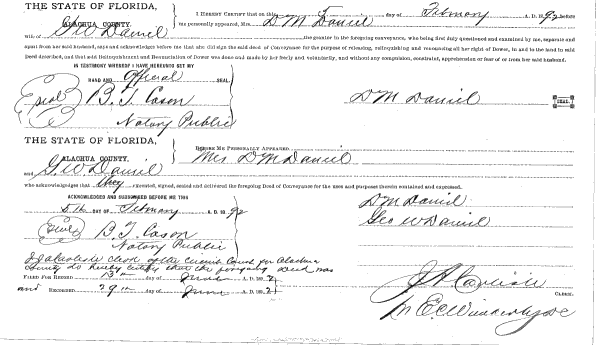 THE STATE OF FLORIDA,
ALACHUA COUNTY.
I HEREBY CERTIFY that on this day of February A. D. 1892 before
me personally appeared, Mrs. D M Daniel
wife of Geo Daniel the grantor in the foregoing conveyance, who being first duly questioned and examined by me, separate and
apart from her said husband, says and acknowledges before me that she did sign the said deed of Conveyance for the purpose of releasing, relinquishing and renouncing all her right of Dower, in and to the land in said
Deed described, and that said Relinquishment and Renunciation of Dower was done and made by her freely and voluntarily, and without any compulsion, constraint, apprehension or fear of or from her said husband.
IN TESTIMONY WHEREOF I HAVE HEREUNTO SET MY
HAND AND official SEAL
Seal B. T. Cason
D M Daniel SEAL.
Notary Public
THE STATE OF FLORIDA,
ALACHUA COUNTY.
BEFORE ME PERSONALLY APPEARED
Mrs D M Daniel
and G. W. Daniel
who acknowledges that they executed, signed, sealed and delivered the foregoing Deed of Conveyance for the uses and purposes therein contained and expressed.
ACKNOWLEDGED AND SUBSCRIBED BEFORE ME THIS
D M Daniel
5th DAY OF February A. D. 1892
Geo W Daniel
Seal B. T. Cason
Notary Public
Clerk of the Circuit Court for Alachua
County do hereby certify that the foregoing deed was
FILED FOR RECORD day of June A. D. 1892
and RECORDED 29th day of June A. D. 1892
CLERK.